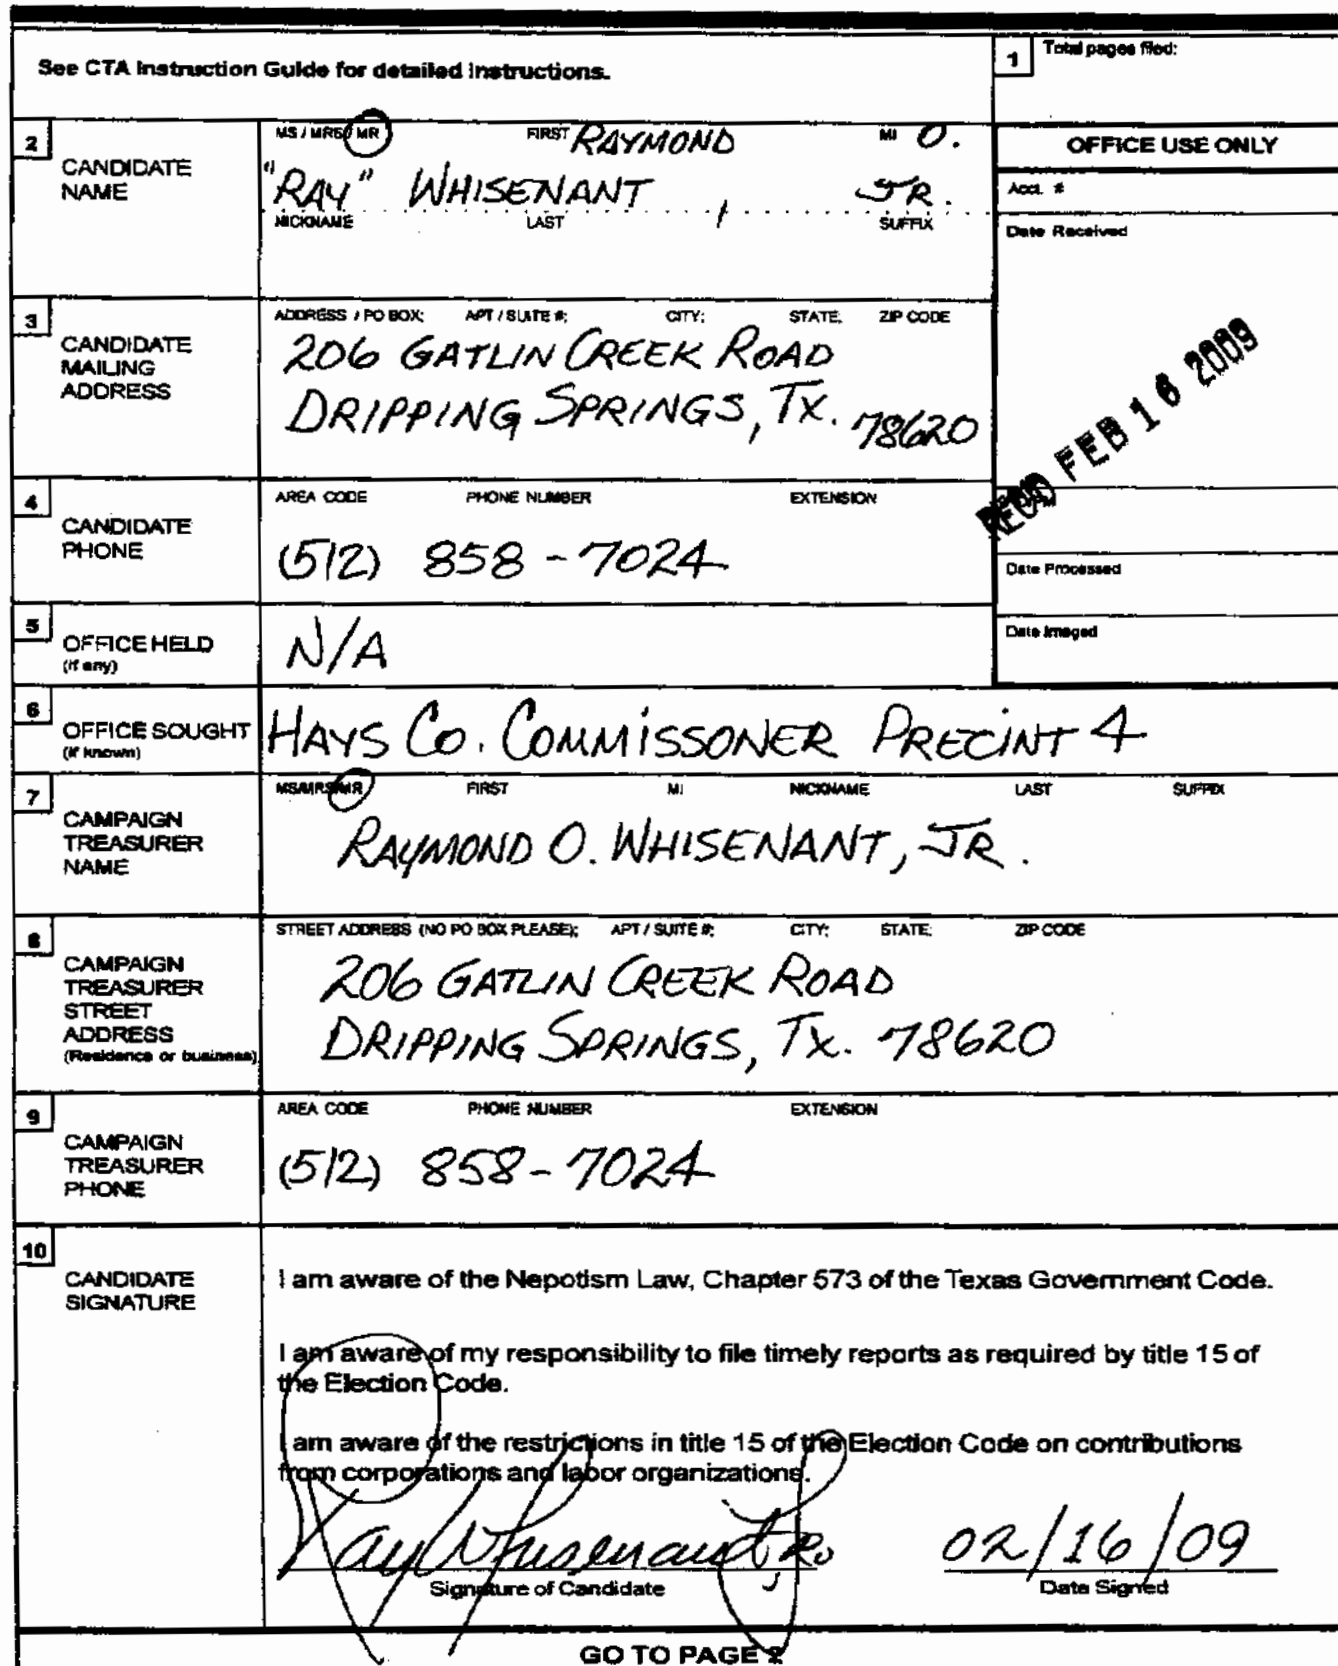 See CTA Instruction Guide for detailed instructions.
1 Total pages filed:
2 CANDIDATE NAME
MS / MRS / MR FIRST RAYMOND MI O.
"RAY" WHISENANT, JR.
NICKNAME LAST SUFFIX
OFFICE USE ONLY
Acct. #
Date Received
REC'D FEB 16 2009
Date Processed
Date Imaged
3 CANDIDATE MAILING ADDRESS
ADDRESS / PO BOX; APT / SUITE #; CITY; STATE; ZIP CODE
206 GATLIN CREEK ROAD
DRIPPING SPRINGS, TX. 78620
4 CANDIDATE PHONE
AREA CODE PHONE NUMBER EXTENSION
(512) 858-7024
5 OFFICE HELD (if any)
N/A
6 OFFICE SOUGHT (if known)
HAYS CO. COMMISSONER PRECINT 4
7 CAMPAIGN TREASURER NAME
MS/MRS/MR FIRST MI NICKNAME LAST SUFFIX
RAYMOND O. WHISENANT, JR.
8 CAMPAIGN TREASURER STREET ADDRESS (Residence or business)
STREET ADDRESS (NO PO BOX PLEASE); APT / SUITE #; CITY; STATE; ZIP CODE
206 GATLIN CREEK ROAD
DRIPPING SPRINGS, TX. 78620
9 CAMPAIGN TREASURER PHONE
AREA CODE PHONE NUMBER EXTENSION
(512) 858-7024
10 CANDIDATE SIGNATURE
I am aware of the Nepotism Law, Chapter 573 of the Texas Government Code.
I am aware of my responsibility to file timely reports as required by title 15 of
the Election Code.
I am aware of the restrictions in title 15 of the Election Code on contributions
from corporations and labor organizations.
Ray Whisenant, Jr. 02/16/09
Signature of Candidate Date Signed
GO TO PAGE 2